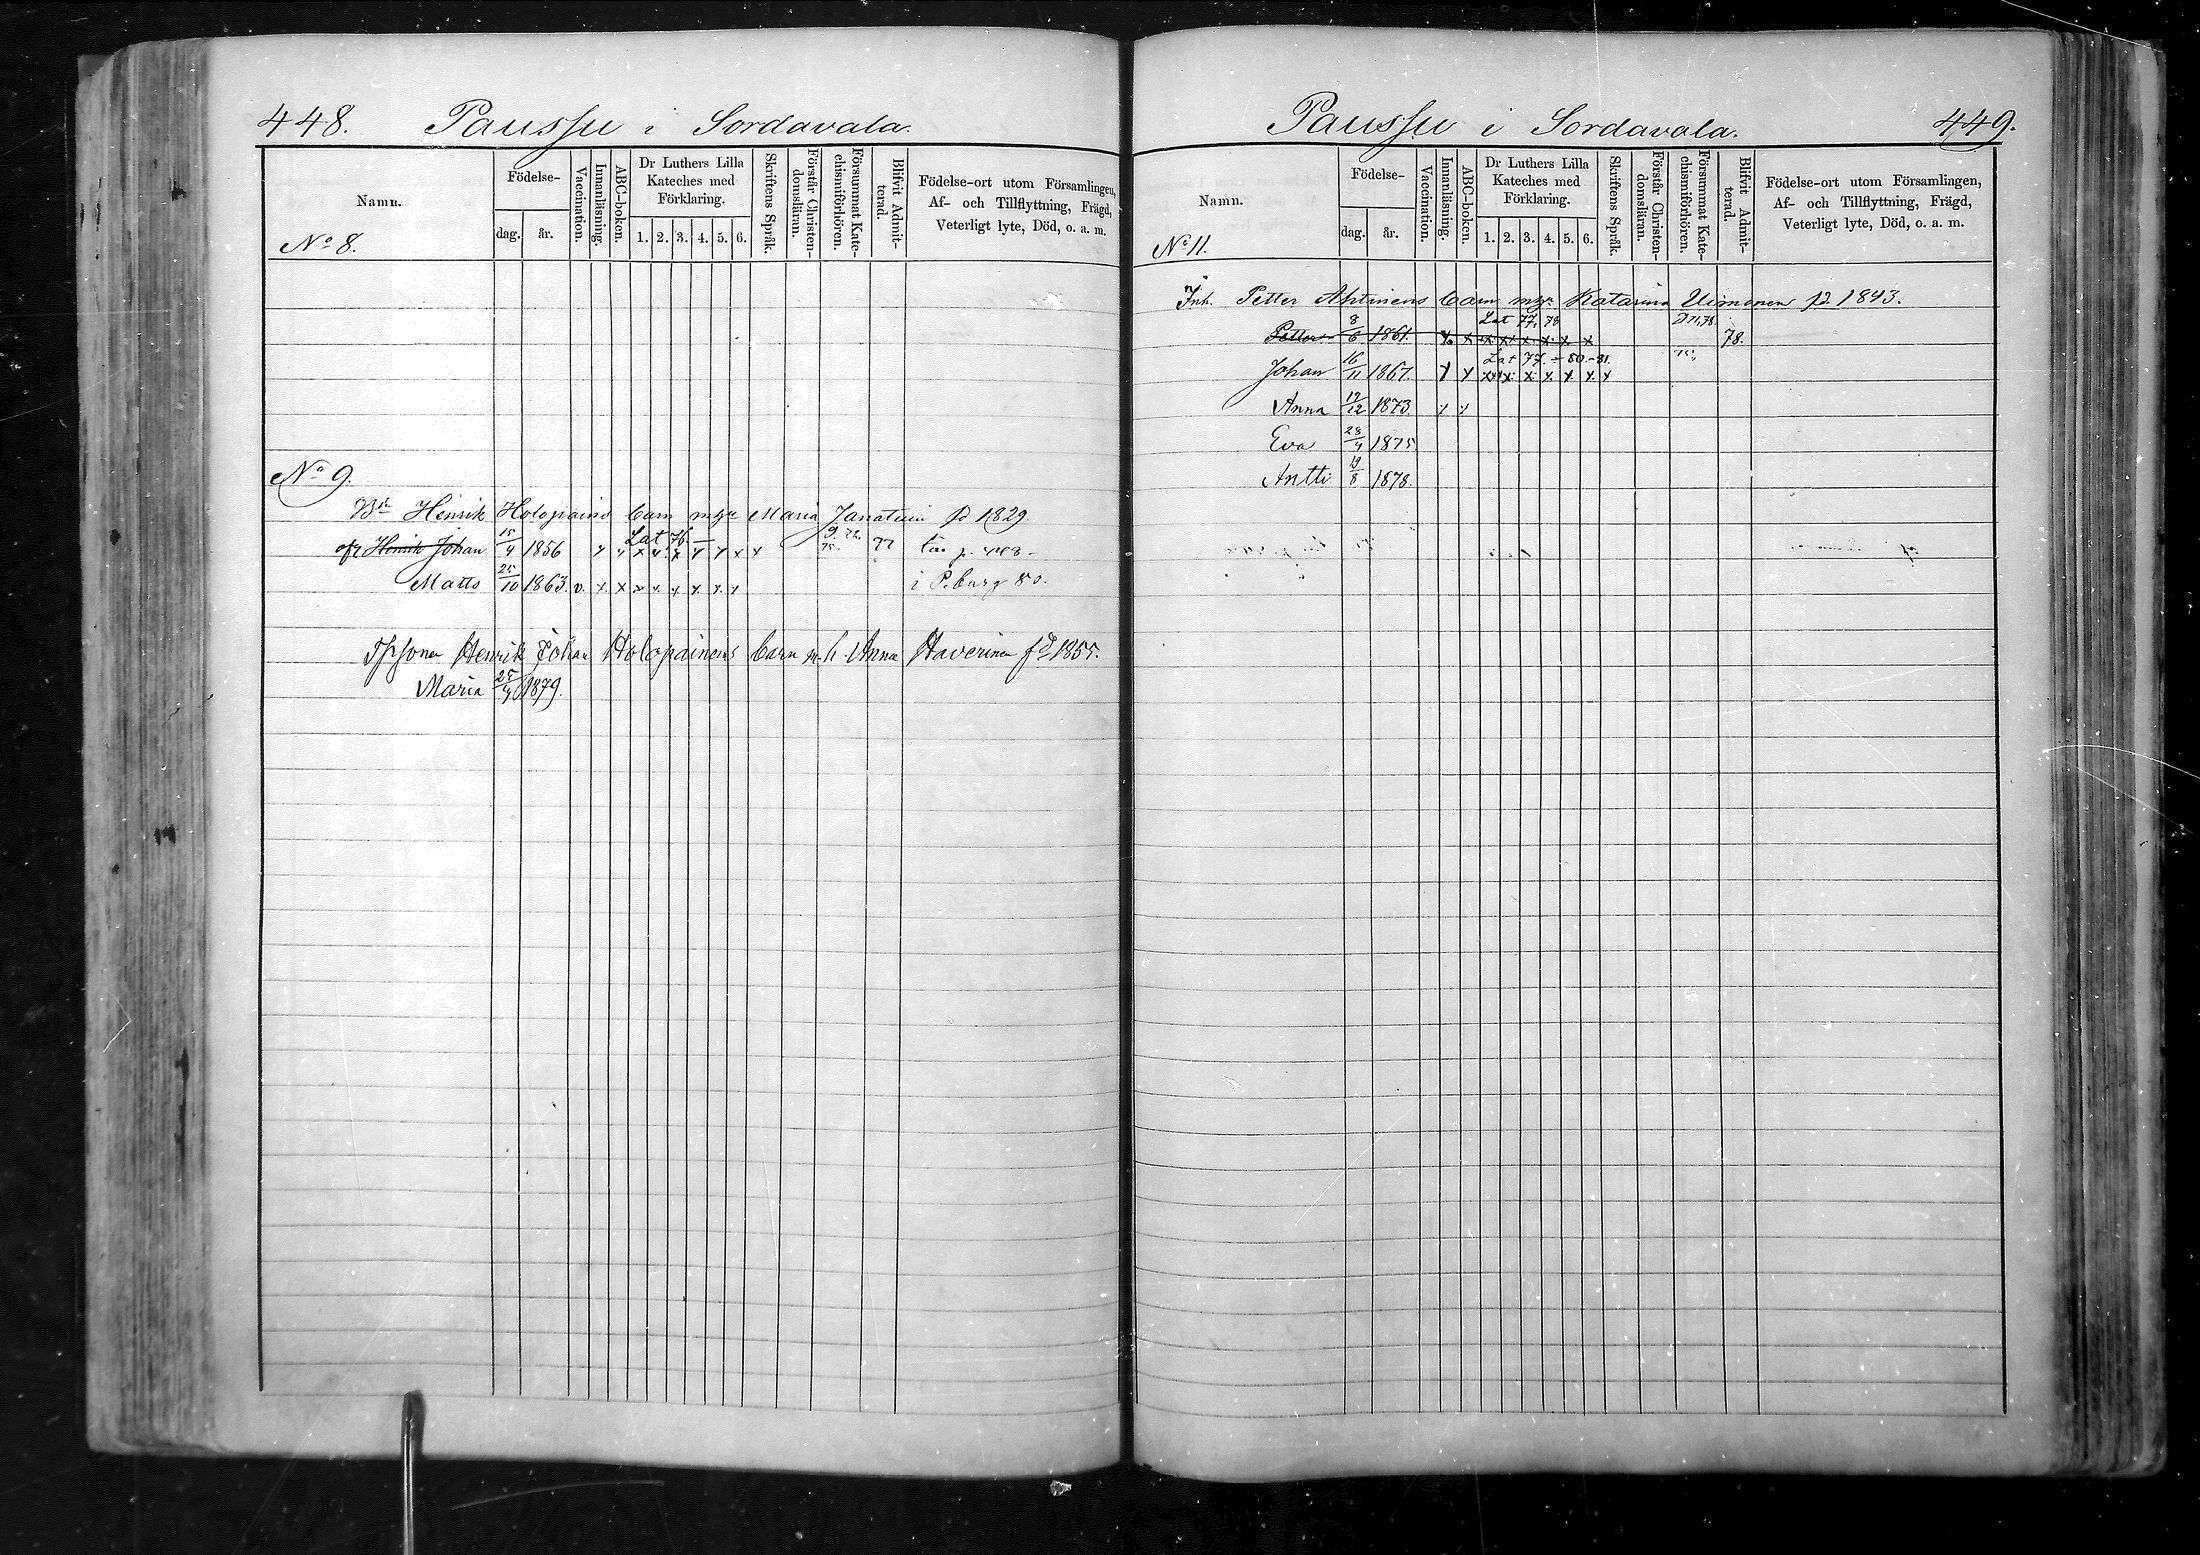 448. Paussu i Sordavala.
Namn. Födelse- dag. år. Vaccination. Innanläsning. ABC-boken. Dr Luthers Lilla Kateches med Förklaring. 1. 2. 3. 4. 5. 6. Skriftens Språk. Förstår Christendomsläran. Försummat Katechismiförhören. Blifvit Admitterad. Födelse-ort utom Församlingen, Af- och Tillflyttning, Frägd, Veterligt lyte, Död, o. a. m.
No 8.
No 9.
Henrik Holopains barn m Maria fd 1829.
Lat 76. —
Henrik Johan 15/4 1856 x x x x x x x x x 77 p. 448
Matts 25/10 1863. v. x x x x x x x x i P.burg 80.
Henrik Johan Holopainens barn m. h. Anna Haverinen fd 1855.
Maria 25/4 1879.
Paussu i Sordavala. 449.
Namn. Födelse- dag. år. Vaccination. Innanläsning. ABC-boken. Dr Luthers Lilla Kateches med Förklaring. 1. 2. 3. 4. 5. 6. Skriftens Språk. Förstår Christendomsläran. Försummat Katechismiförhören. Blifvit Admitterad. Födelse-ort utom Församlingen, Af- och Tillflyttning, Frägd, Veterligt lyte, Död, o. a. m.
No 11.
Inh. Petter Ahtinens barn Katarina Uimonen fd. 1843.
Lat 77, 78
Petter 8/6 1861. x x x x x x x x 78.
Lat 77. – 80. – 81.
Johan 16/11 1867. x x x x x x x x x
Anna 19/12 1873. x x
Eva 28/4 1875
Antti 19/8 1878.